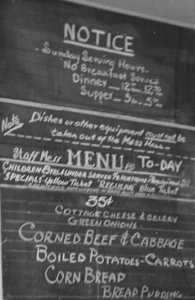 NOTICE
Sunday Serving Hours
No Breakfast Served
Dinner
Supper
Note
Dishes or other equipment must not be
taken out of the Mess Hall
Staff Mess MENU TO-DAY
CHILDREN
SPECIALS - YELLOW TICKET "REGULAR" Blue Ticket
35¢
COTTAGE CHEESE & CELERY
GREEN ONIONS
CORNED BEEF & CABBAGE
BOILED POTATOES - CARROTS
CORN BREAD
BREAD PUDDING